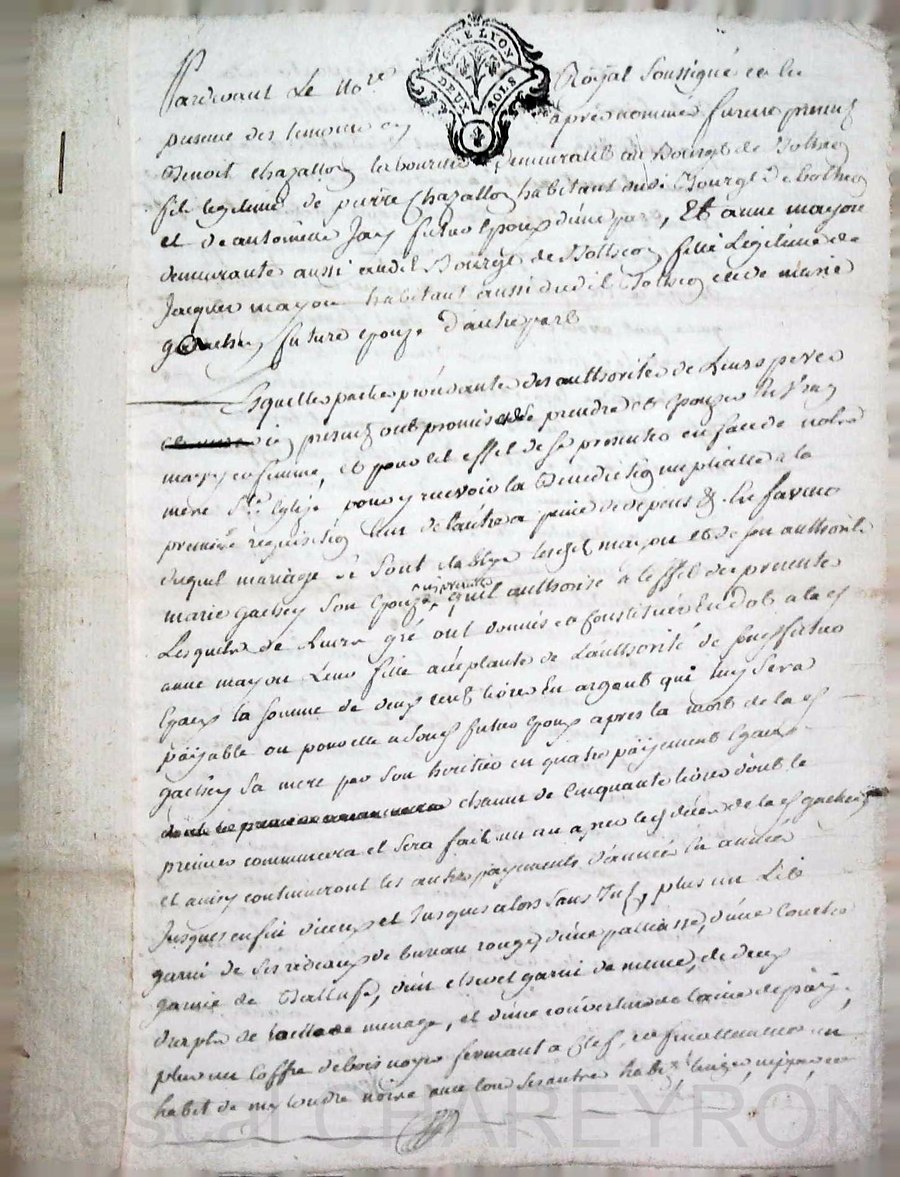 G. DE LYON
DEUX SOLS
Pardevant Le No.re Royal Soussigné en la
presence des temoins cy après nommés furent presents
Benoit Chazallon laboureur demeurant au Bourg de
fils legitime de pierre Chazallon habitant audit Bourg de
et de antoinette Jay futur Epoux d'une part, Et anne mayou
demeurante aussi audit Bourg de fille Légitime de
Jacques mayou habitant aussi audit et de marie
gachey future epouze d'autre part
Lesquelles parties procédante des authorités de Leurs peres
cy presents ont promis de se prendre et Epouzer En vray
mary et femme, et pour cet effet de se presenter en face de notre
mere Ste Eglize pour y recevoir la Benediction nuptialle a la
premiere requisition Lun de l'autre a peine de depens & En faveur
duquel mariage se sont établys mayou et de son authorité
marie gachey son Epouze, qu'il authorise a l'effet des presentes
Lesquels de Leurs gré ont donnés et constitués En dot a lad.
anne mayou Leur fille acceptante de L'authorité de futur
Epoux la somme de deux cent livres En argent qui luy sera
païjable ou pour elle a sond. futur Epoux apres la mort de la d.
gachey sa mere par son heritier en quatre païjements Egaux
chacun de Cinquante livres dont le
premier commencera et sera fait un an apres le déces de la d. gachey
et ainsy continueront les autres payements d'année En année
Jusques en fin diceux et Jusques alors sans plus un Lit
garni de ses rideaux de bureau rouge, d'une paliasse, d'une Couetre
garnie de Ballufe, d'un chevet garni de même, de deux
draps de toille de menage, et d'une couverture de laine de païj,
plus un Coffre de bois noyer fermant a Clef, et finallement un
habit de noire avec tous ses autres linges, nippes, et
Pascal CHAREYRON